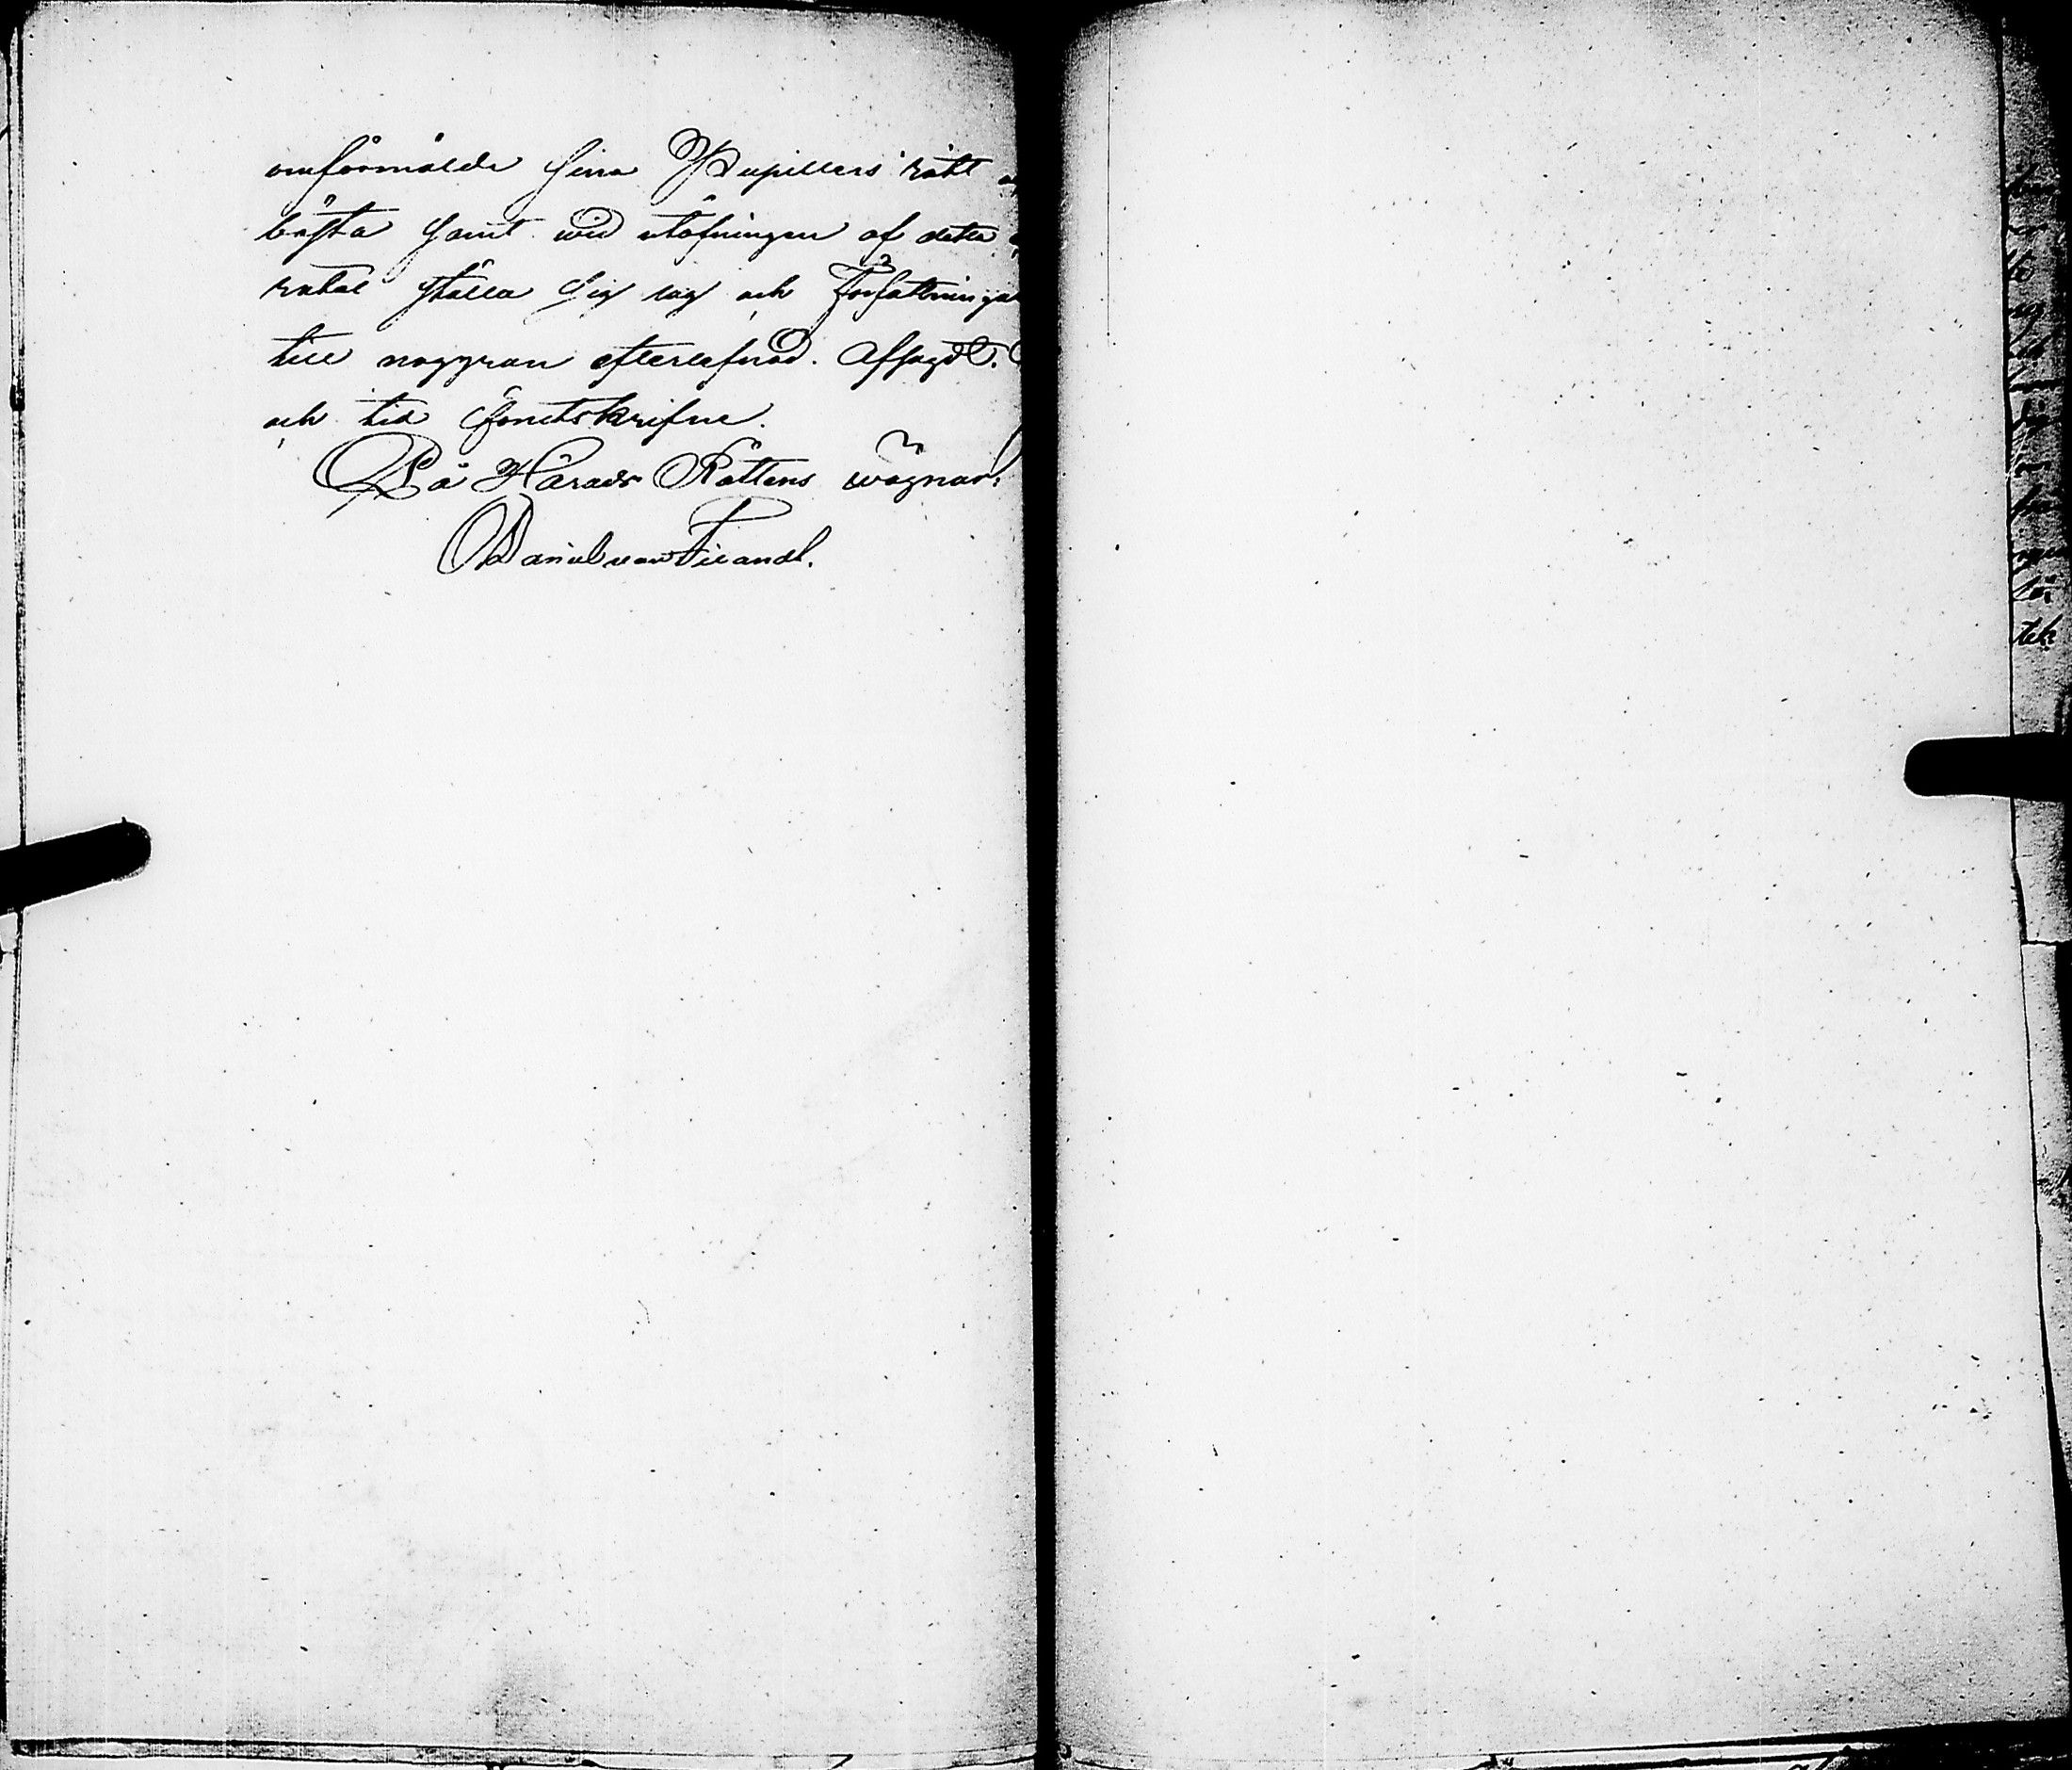 omförmälde sina Pupillers rätt
bästa samt wid utöfningen af detta
ställa sig lag och Författningar
till noggran efterlefnad. Afsagdt.
och tid som utskrifne.
På Härads Rättens wägnar:
Daniel von Fieandt.